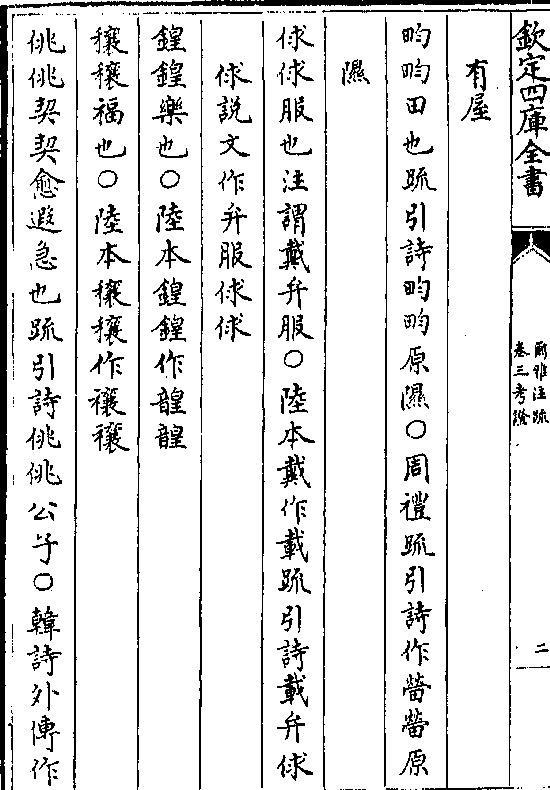 欽定四庫全書
爾雅注疏
卷三考證
二
有屋
畇畇田也疏引詩畇畇原濕○周禮疏引詩作䇦䇦原
隰
俅俅服也注謂戴弁服○陸本戴作載疏引詩載弁俅
俅說文作弁服俅俅
鍠鍠樂也○陸本鍠鍠作韹韹
穰穰福也○陸本穰穰作禳禳
佻佻契契愈遐急也疏引詩佻佻公子○韓詩外傳作